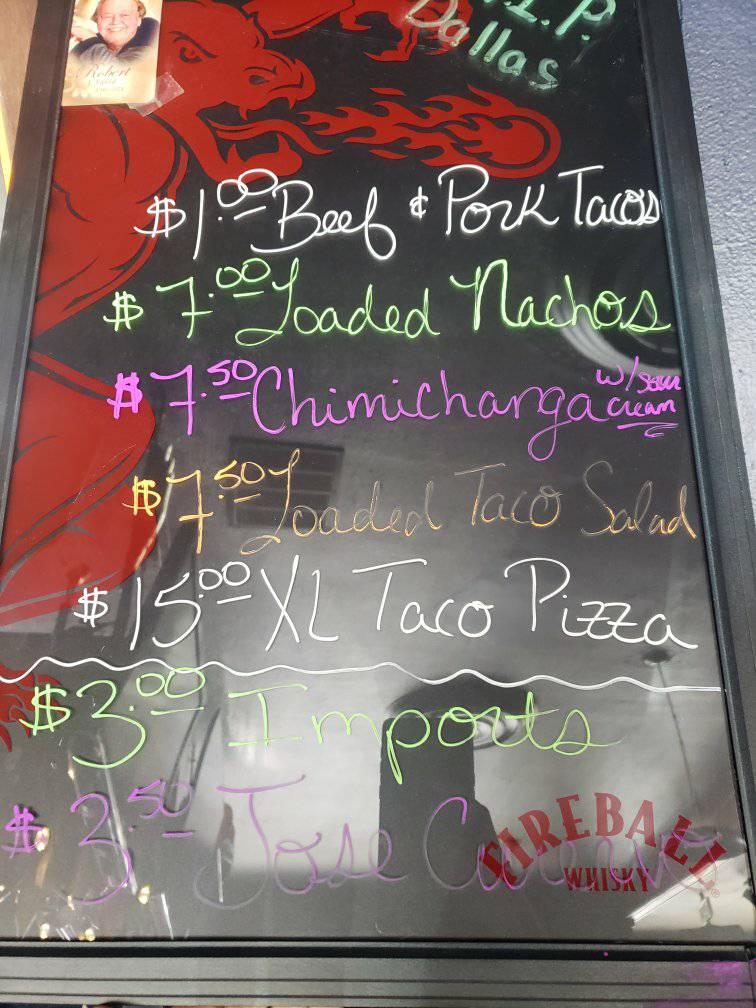 R.I.P.
Dallas
Robert
$1.00 Beef & Pork Tacos
$7.00 Loaded Nachos
$7.50 Chimichanga w/sour cream
$7.50 Loaded Taco Salad
$15.00 XL Taco Pizza
$3.00 Imports
$3.50 Jose Cuervo
FIREBALL
WHISKY